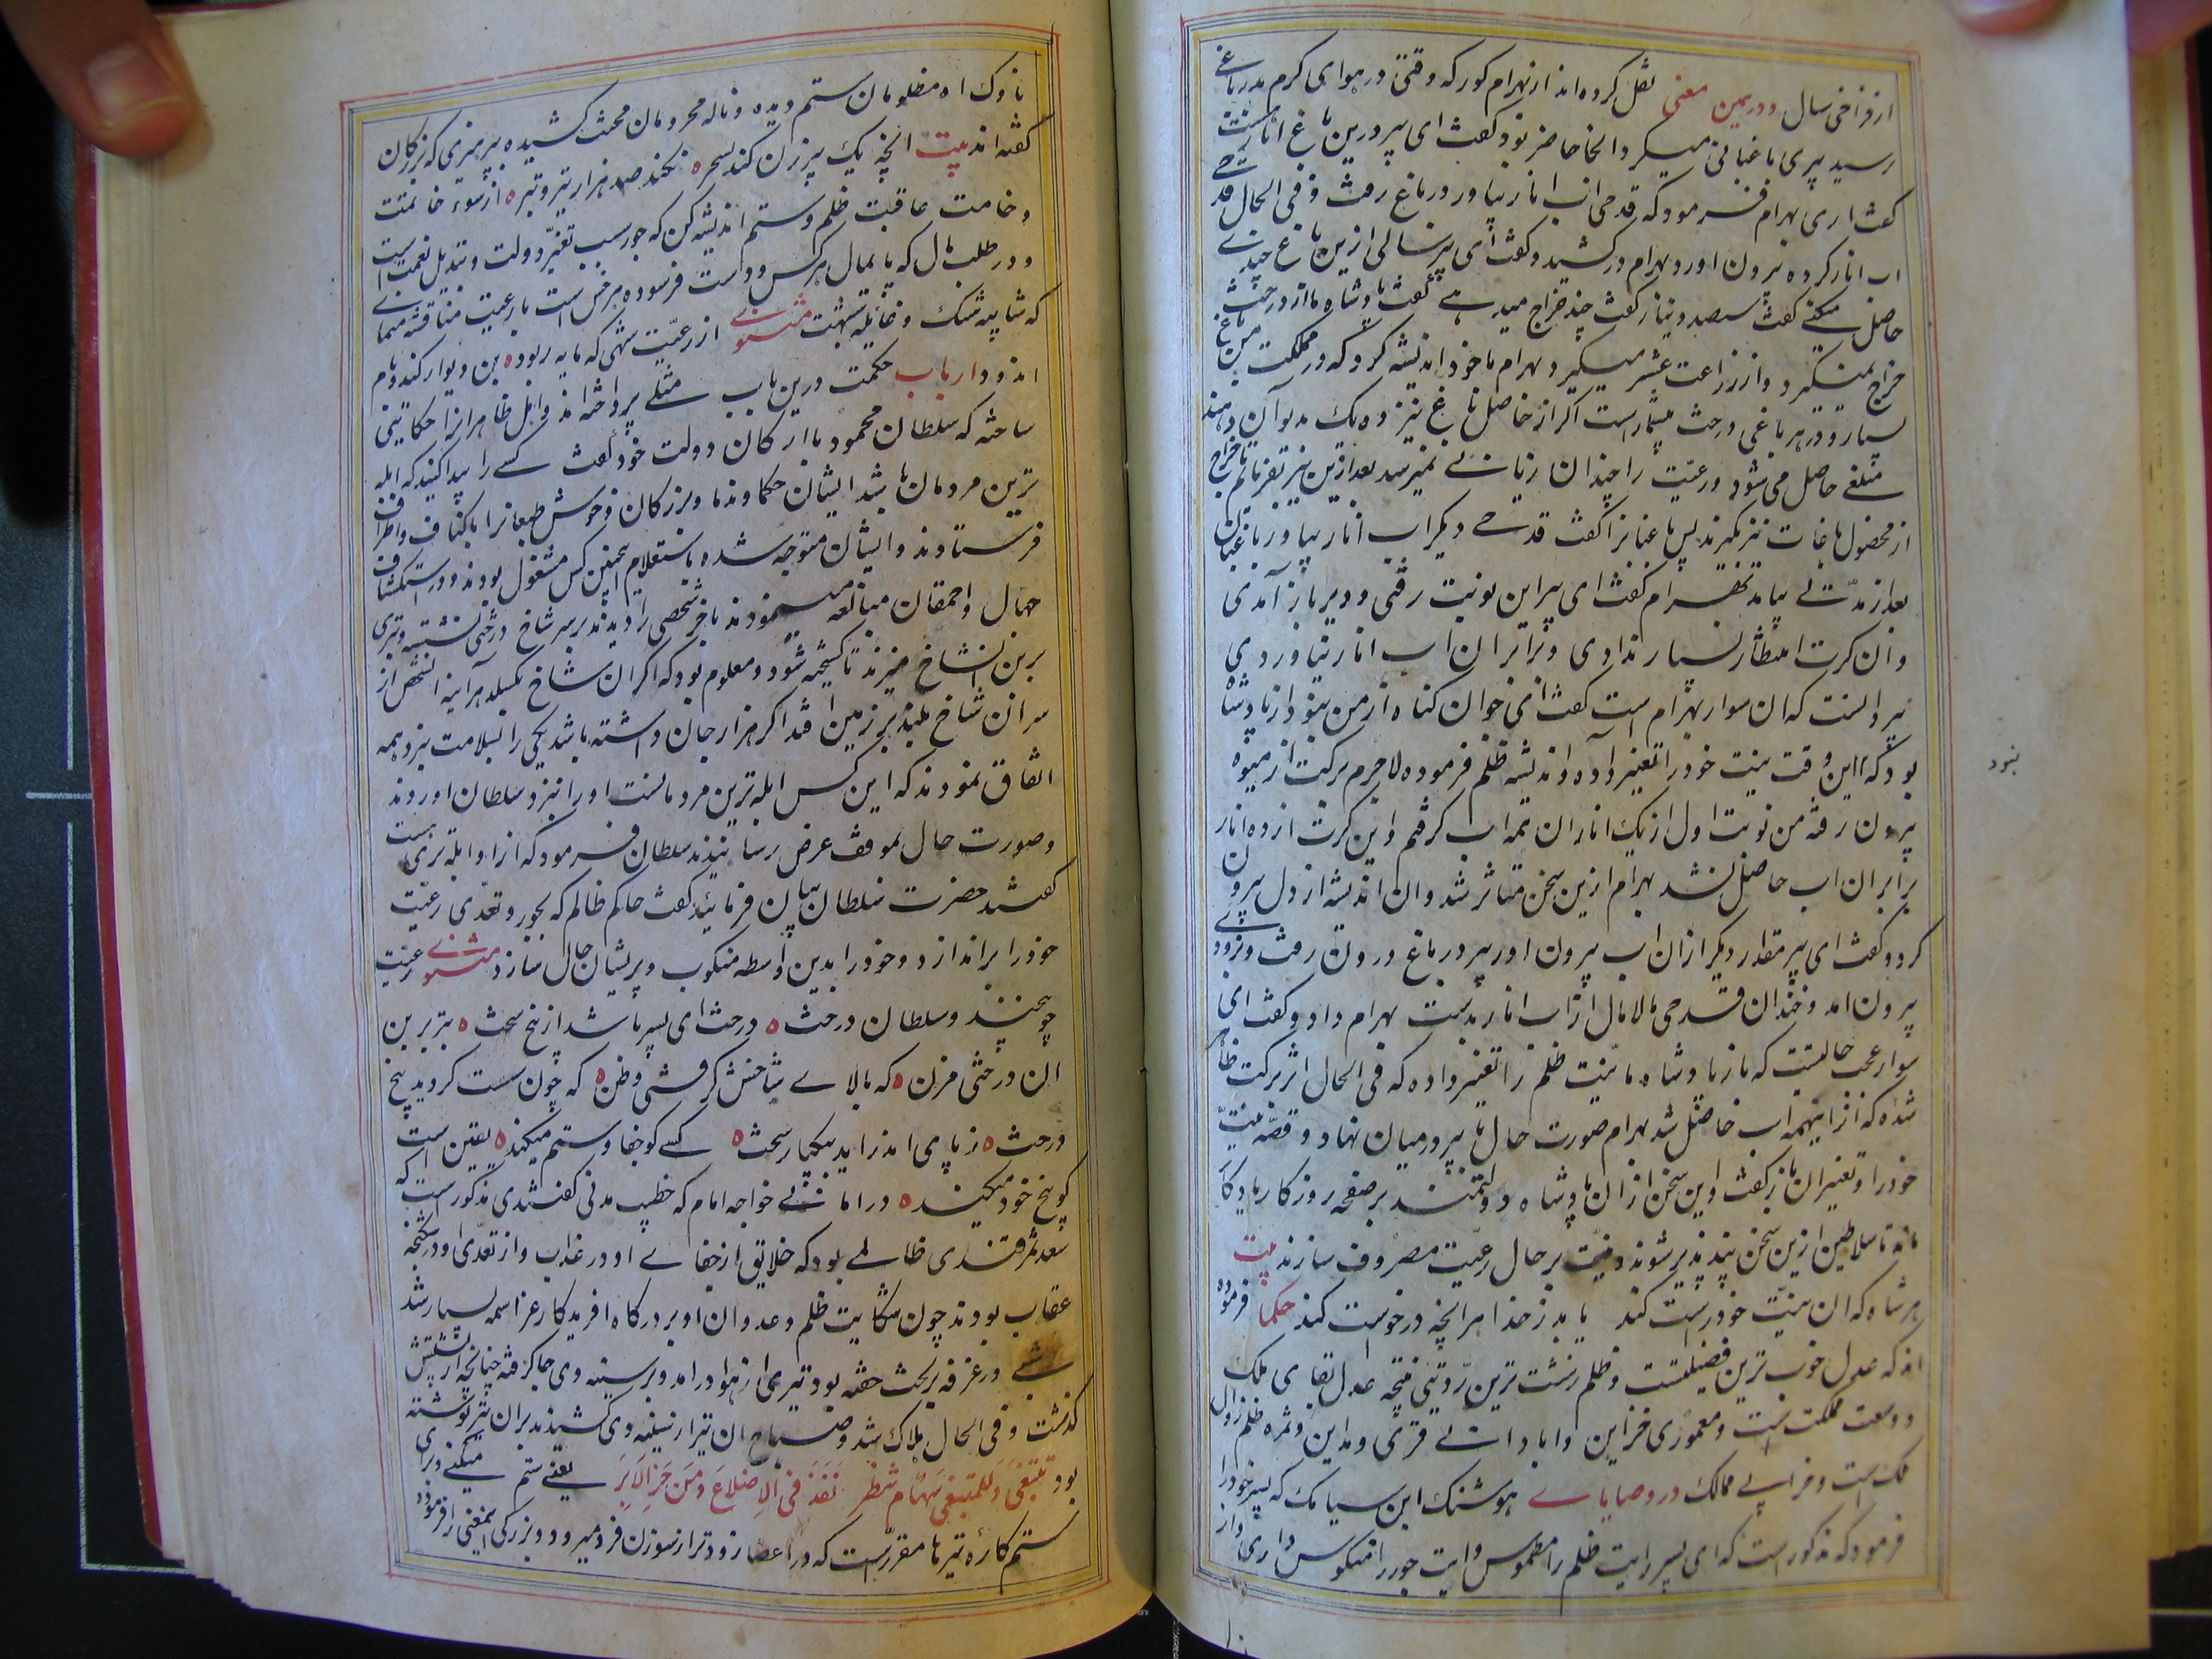 از فراخی سال و درهمین معنی نقل کرده اند از بهرام کور که وقتی در هوای کرم بدر باغی
رسید پیری باغبانی میکرد انجا حاضر بود کفت ای پیر درین باغ انار هست
کفت اری بهرام فرمود که قدحی اب انار بیاور پیر در باغ رفت و فی الحال قدحی
اب انار کرده بیرون اورد بهرام درکشید و کفت ای پیر سالی ازین باغ چندی
حاصل میکنی کفت سیصد دینار کفت چند خراج میدهی کفت پادشاه ما از درخت
خراج نمیکیرد و از زراعت عشر میکیرد بهرام با خود اندیشه کرد که در مملکت من باغ
بسیار و در هر باغی درخت بیشمار است اکر از حاصل باغ نیز ده یک بدیوان دهند
مبلغی حاصل می شود و رعیت را چندان زیانی نمیرسد بعد ازین نیز بفرمایم تا خراج
از محصول باغات نیز بکیرند پس باغبانرا کفت قدحی دیکر اب انار بیاور باغبان
بعد از مدتی بیامد بهرام کفت ای پیر این نوبت رفتی و دیر باز آمدی
و ان کرت انتظار بسیار ندادی و برابر ان اب انار نیاوردی
پیر دانست که ان سوار بهرام است کفت ای جوان کناه از من نبود از پادشاه
بود که این وقت نیت خود را تغییر داده و اندیشه ظلم فرموده لاجرم برکت از میوه
بیرون رفته من نوبت اول از یک انار ان همه اب کرفتم و این کرت از ده انار
برابر ان اب حاصل نشد بهرام ازین سخن متاثر شد و ان اندیشه از دل بیرون
کرد و کفت ای پیر مقدار دیکر ازان اب بیرون اور پیر در باغ درون رفت و بزودی
بیرون امد و خندان قدحی مالامال از اب انار بدست بهرام داد و کفت ای
سوار عجب حالیست که باز پادشاه ما نیت ظلم را تغییر داده که فی الحال اثر برکت ظاهر
شده که از انار اینهمه اب حاصل شد بهرام صورت حال با پیر در میان نهاد و قصه نیت
خود را و تغییر ان باز کفت و این سخن از ان پادشاه دولتمند بر صفحه روزکار یادکار
ماند تا سلاطین ازین سخن پند پذیر شوند و نیت بر حال رعیت مصروف سازند بیت
هر شاه که ان نیت خود راست کند یابد ز خدا هر انچه درخواست کند حکما فرموده
اند که عدل خوب ترین فضیلتست و ظلم زشت ترین رذیتی نتیجه عدل بقای ملک
و وسعت مملکت است و معموری خزاین و ابادانی قری و مداین و ثمره ظلم زوال
ملک است و خرابی ممالک در وصایای هوشنک ابن سیامک که پسر خود را
فرمود که مذکور است که ای پسر رایت ظلم را مطموس و ایت جور را منکوس داری و از
نبود
ناوک اه مظلومان ستم دیده و ناله محرومان محنت کشیده بپرهیزی که بزرکان
کفته اند بیت انچه یک پیر زن کند بسحر نکند صد هزار تیر و تبر از سوء خاتمت
و خامت عاقبت ظلم و ستم اندیشه کن که جور سبب تغیر دولت و تبدیل نعمت است
و در طلب مال که پایمال هر کس و دست فرسوده هر خس است با رعیت مناقشه منمای
که شایبه شک و غایله تهمت مثنوی از رعیت شهی که مایه ربود بن دیوار کند و بام
اندود ارباب حکمت درین باب مثلی پرداخته اند و اهل ظاهر انرا حکایتی
ساخته که سلطان محمود با ارکان دولت خود کفت کسی را پیدا کنید که ابله
ترین مردمان باشد ایشان حکما و ندما و بزرکان و خوش طبعانرا باکناف و اطراف
فرستادند و ایشان متوجه شده باستعلام همچنین کس مشغول بودند و در استکشاف
جهال و احمقان مبالغه مینمودند تا اخر شخصی را دیدند بر سر شاخ درختی نشسته و تبری
بر بن ان شاخ میزند تا کسیخته شود و معلوم بود که اکر ان شاخ بکسلد هر آینه ان شخص از
سر ان شاخ بلند بر زمین افتد اکر هزار جان داشته باشد یکی را بسلامت نبرد همه
اتفاق نمودند که این کس ابله ترین مردمانست او را نزد سلطان اوردند
و صورت حال بموقف عرض رسانیدند سلطان فرمود که ازو ابله تری هست
کفتند حضرت سلطان بیان فرمائید کفت حاکم ظالم که بجور و تعدی رعیت
خود را براندازد و خود را بدین واسطه منکوب و پریشان حال سازد مثنوی رعیت
چو بیخند و سلطان درخت درخت ای پسر باشد از بیخ سخت تبر بر بن
ان درختی مزن که بالای شاخش کرفتی وطن که چون سست کردید بیخ
درخت ز پای اندر اید بیکبار سخت کسی کو جفا و ستم میکند یقین است
کو بیخ خود میکند در امالی خواجه امام که خطیب مدنی کفتندی مذکور است که
سغد سمرقندی ظالمی بود که خلایق از جفای او در عذاب و از تعدی او در شکنجه
عقاب بودند چون شکایت ظلم و عدوان او بر درکاه افریدکار عز اسمه بسیار شد
شبی در غرفه بر تخت خفته بود تیری از هوا درامد و بر سینه وی جا کرفته چنانچه از پشتش
کذشت و فی الحال هلاک شد و صباح ان تیر از سینه وی کشیدند بران تیر نوشته
بود تبتغی و للمبتغی سهام تنتظر نفذ فی الاضلاع من خز الابر یعنی ستم میکنی و برای
ستمکاره تیرها مقرر است که در اعضا زودتر از سوزن فرو میرود و بزرکی اینمعنی را فرموده